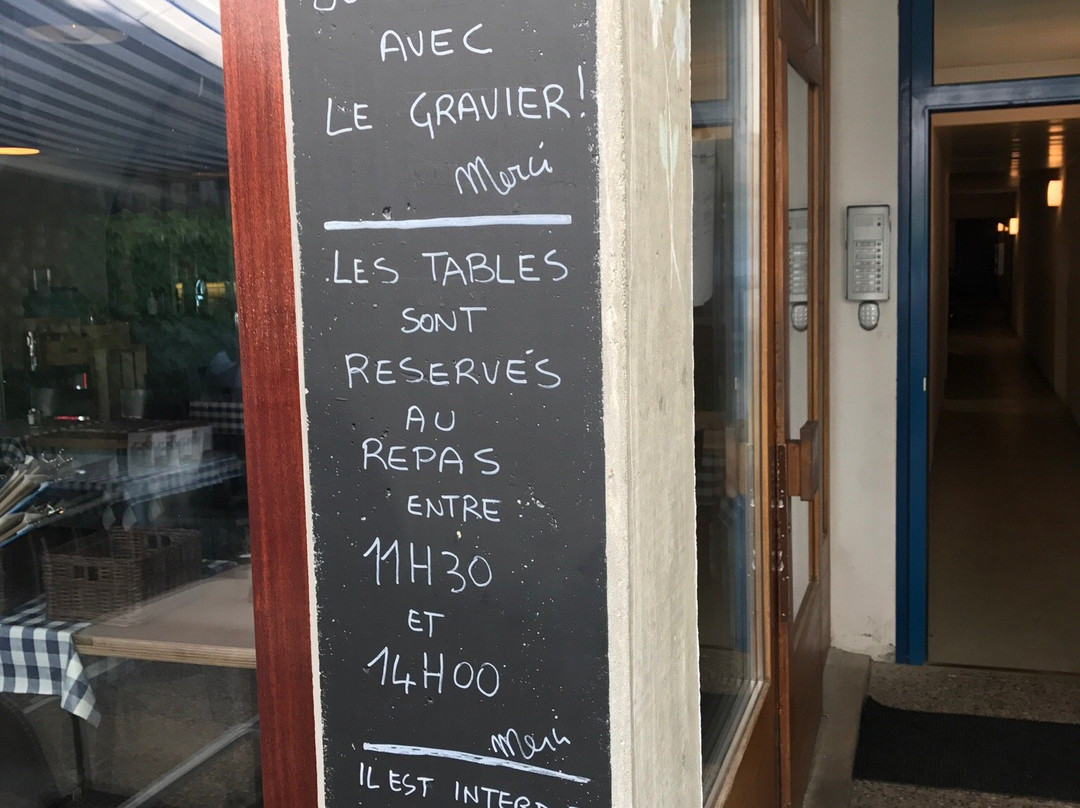 AVEC
LE GRAVIER!
Merci
LES TABLES
SONT
RESERVÉS
AU
REPAS
ENTRE
11H30
ET
14H00
Merci
IL EST